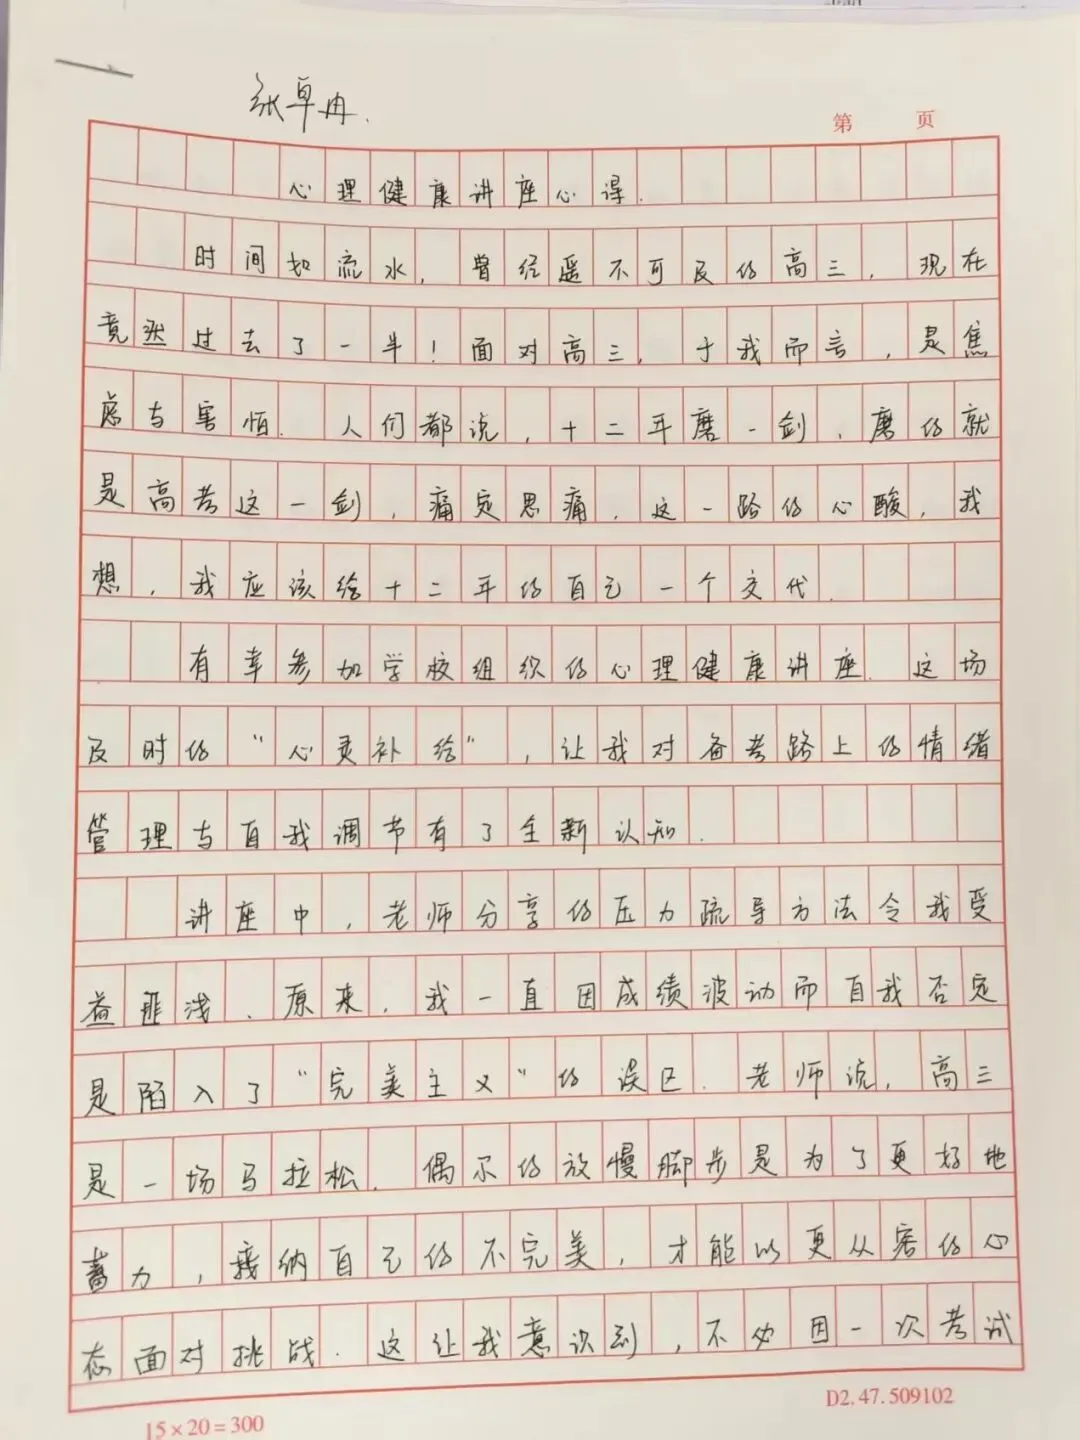 张卓冉.
第 页
心理健康讲座心得.
时间如流水,曾经遥不可及的高三,现在
竟然过去了一半!面对高三,于我而言,是焦
虑与害怕.人们都说,十二年磨一剑,磨的就
是高考这一剑,痛定思痛,这一路的心酸,我
想,我应该给十二年的自己一个交代.
有幸参加学校组织的心理健康讲座.这场
及时的“心灵补给”,让我对备考路上的情绪
管理与自我调节有了全新认知.
讲座中,老师分享的压力疏导方法令我受
益匪浅.原来,我一直因成绩波动而自我否定
是陷入了“完美主义”的误区.老师说,高三
是一场马拉松.偶尔的放慢脚步是为了更好地
蓄力,接纳自己的不完美,才能以更从容的心
态面对挑战.这让我意识到,不必因一次考试
15×20=300
D2.47.509102